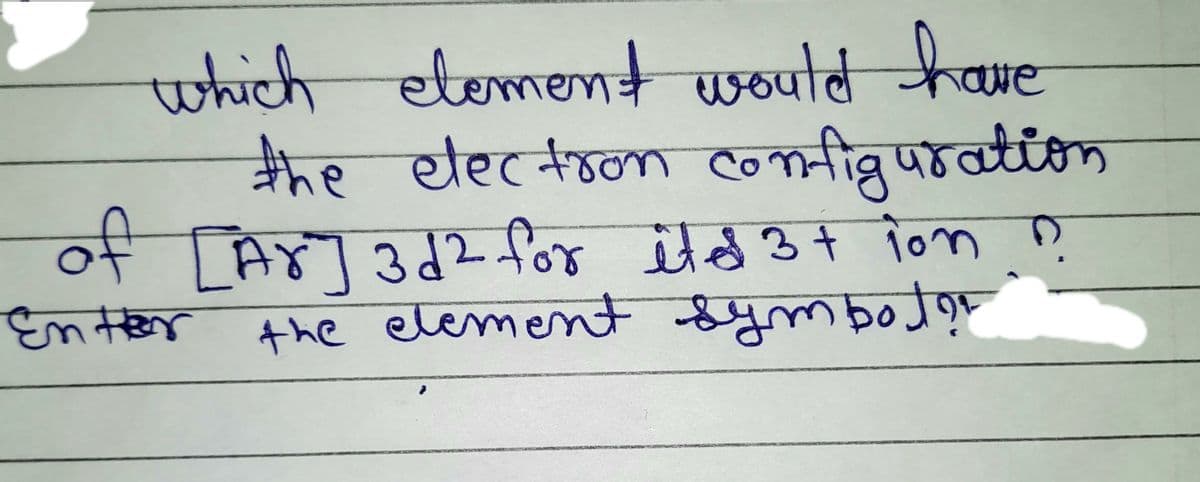 which element would have
the electron configuration
of [Ar] 3d2 for its 3+ ion ?
Enter the element symbol?